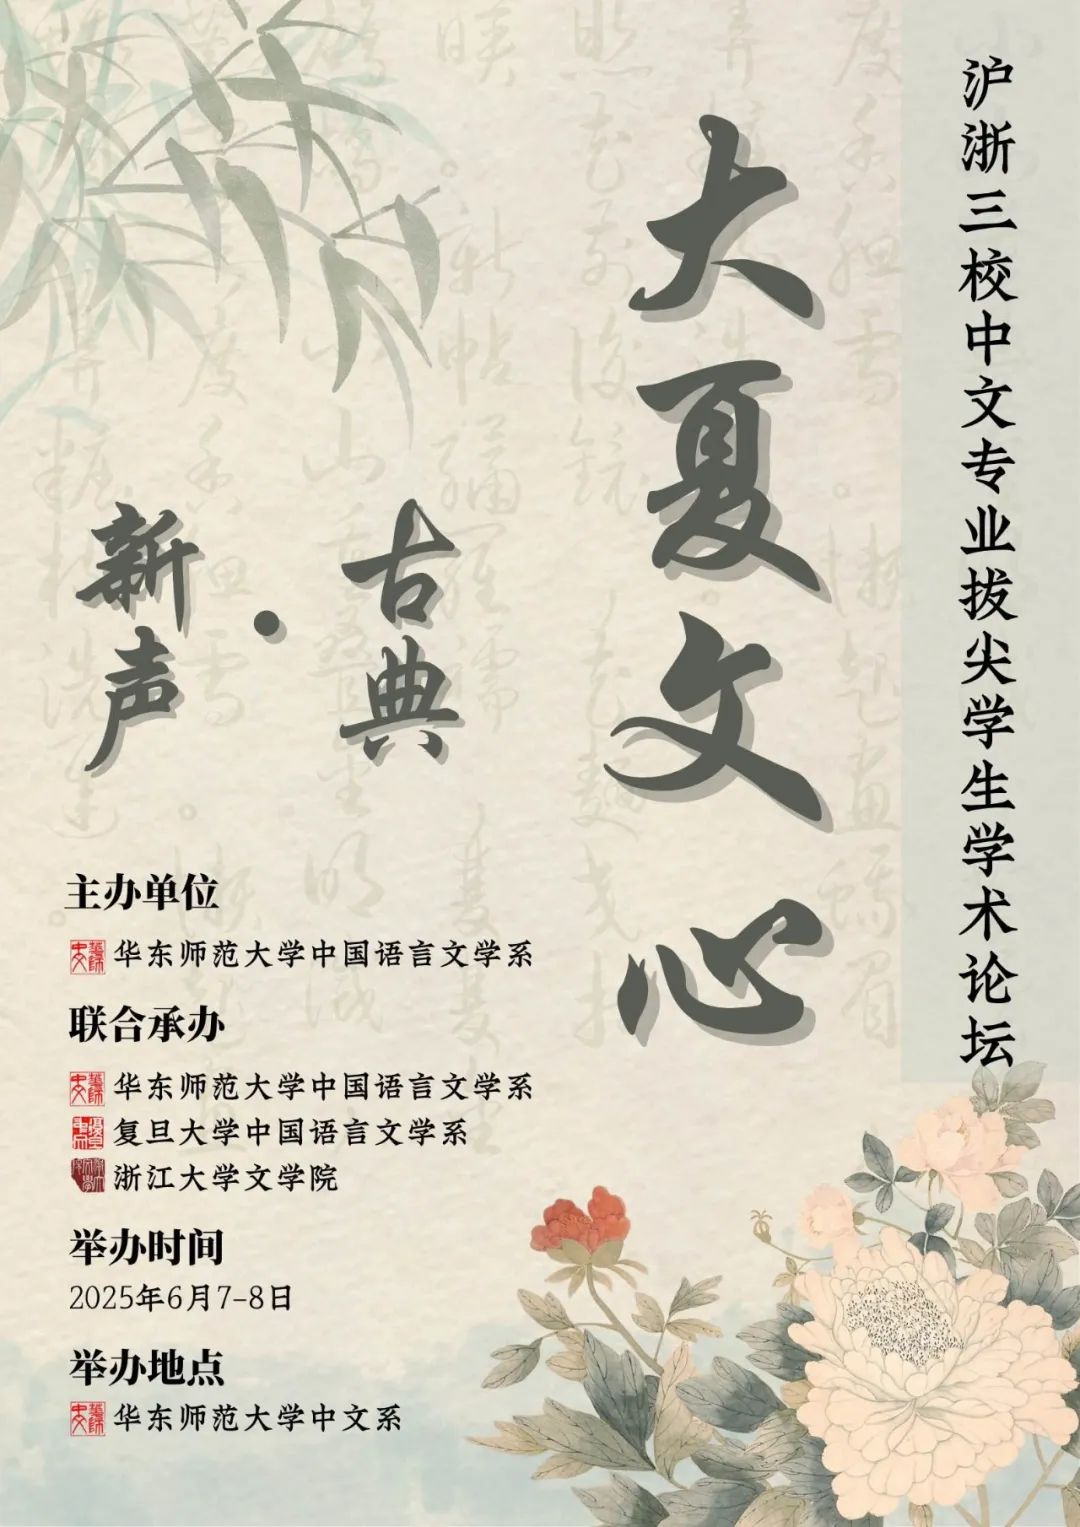 沪浙三校中文专业拔尖学生学术论坛
大夏文心
古典
·
新声
主办单位
华东师范大学中国语言文学系
联合承办
华东师范大学中国语言文学系
复旦大学中国语言文学系
浙江大学文学院
举办时间
2025年6月7-8日
举办地点
华东师范大学中文系